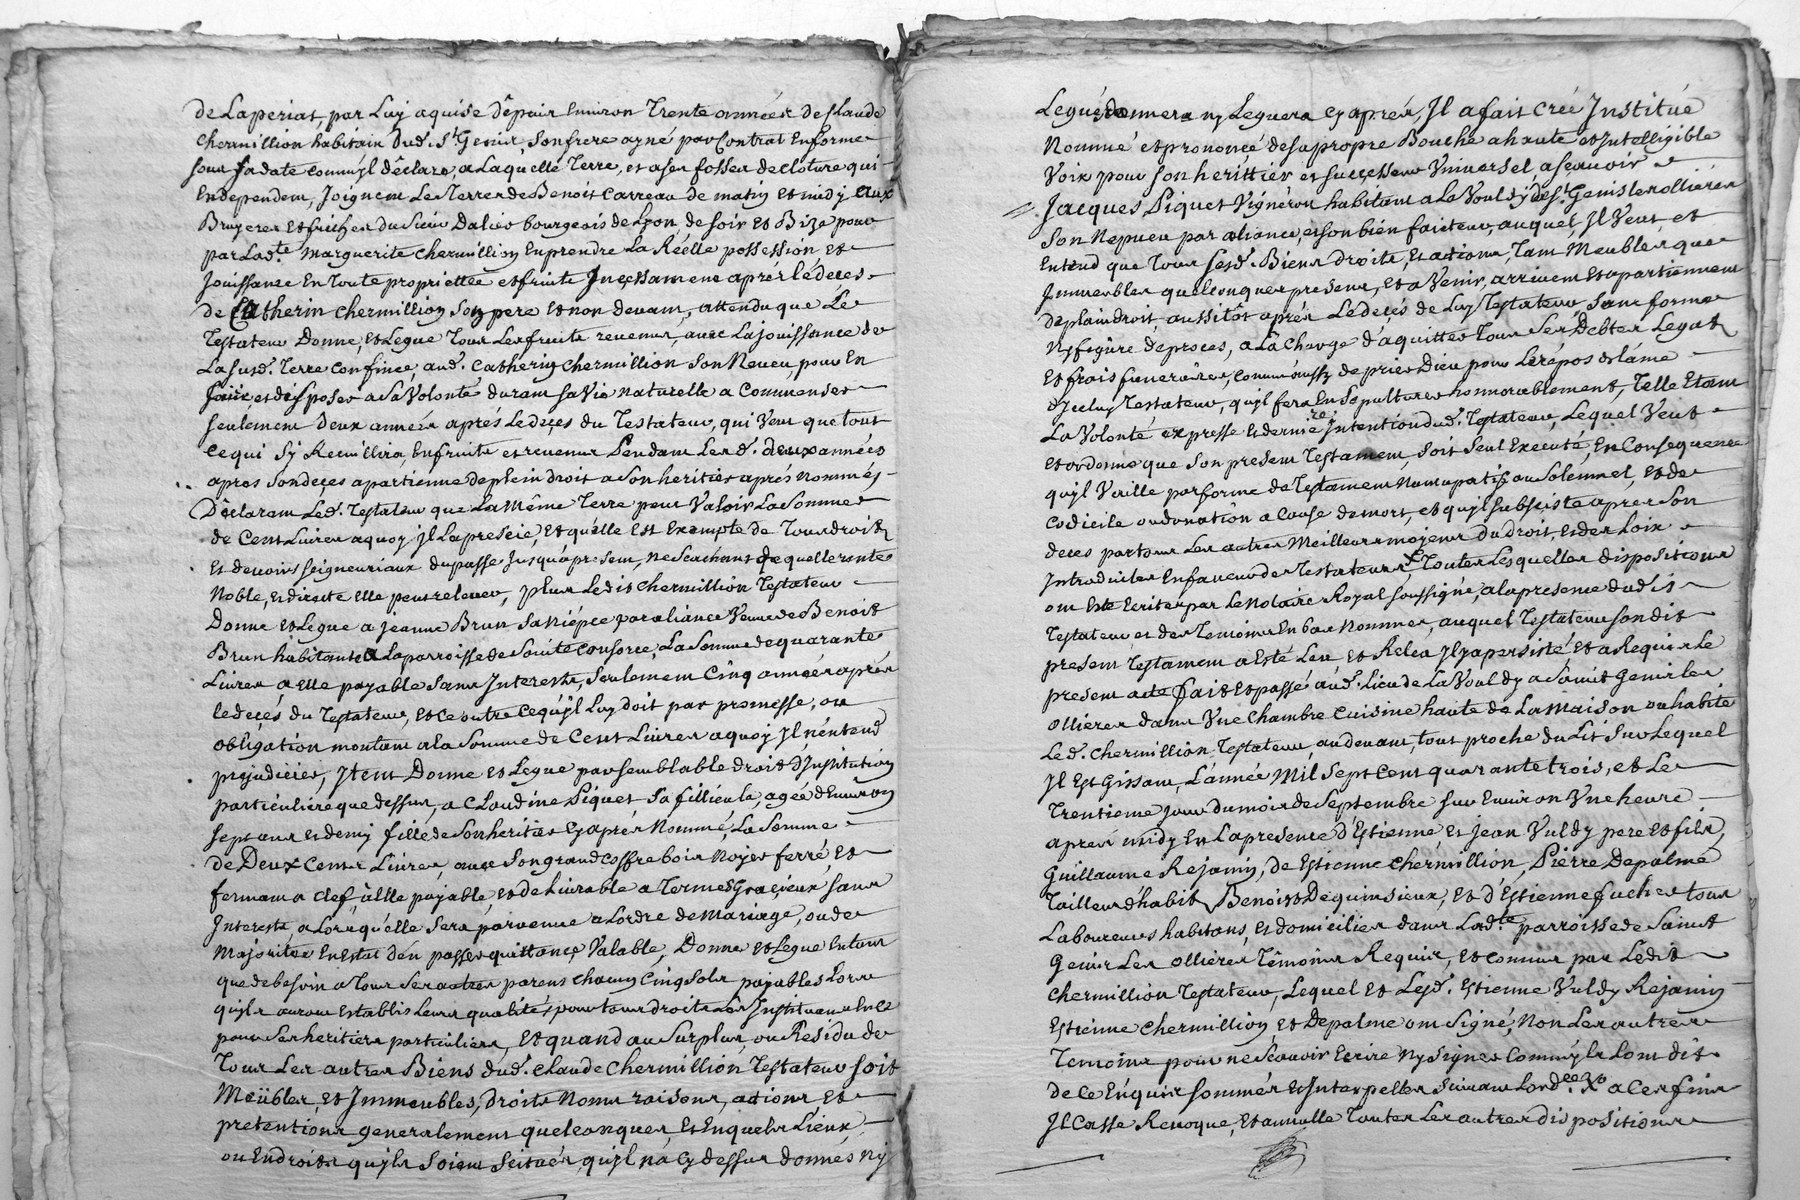 de Laperiat, par Luy aquise dêpuir Environ Trente années de Claude
Chermillion habitain Dud. St Genis, son frere ayné par Contrat Enforme
sour sa date comm'yl dêclare, a Laquelle Terre, et a ser fossez de cloture qui
En dependent, Joignent Les Terres de Benoit Carreau de matin et midy aux
Bruyeres et friches du Sieur Dalier bourgeois de Lyon, de soir et Bize pour
par Lad.te Marguerite Chermillion En prendre La Réelle possession, et
Jouissance En toute propriettée et fruits Incessament aprér lé déces
de Catherin Chermillion son pere et non devant, attendu que Lé
Testateur Donne, et Legue Tous Les fruits revenus, avec La jouissance de
La susd. Terre confinée, aud. Catherin Chermillion son Neveu, pour En
Jouir et disposer a sa Volonté durant sa Vie naturelle a Commencer
seulément deux années aprés Le deçes du Testateur, qui Veut que tout
ce qui s'y Recuillira, En fruits et revenus Pendant Les d. deux années
apres son deçes apartienne de plein droit a son heritier aprés nommés
Dêclarant Led. Testateur que La même Terre peut Valoir La somme
de Cent Livres aquoy Jl La presie, et qu'elle Est Exempte de Tous droits
Et devoirs seigneuriaux du passé Jusqu'apresent, ne scachant de quelle rente
Noble, et directe Elle peut relever, plus Ledit Chermillion Testateur
Donne et Legue a Jeanne Brun sa Niépce par aliance Veuve de Benoit
Brun habitante a La parroisse de Sainte Consorce, La Somme de quarante
Livres a Elle payable sans Interests, seulement Cinq années aprér
le deçés du Testateur, et ce outre ce qu'yl Luy doit par promesse, ou
obligation montant a la somme de Cent Livres aquoy Jl n'entend
prejudicier, Jtem Donne et Legue par semblable droit d'Institution
particuliere que dessus, a Claudine Piquet sa fillieule, agée d'Environ
sept ans et demy fille de son heritier cy aprér Nommé, La Somme
de Deux Cents Livres, avec son grand coffre bois Noyer ferré, et
fermant a clef, a Elle payable, et de Livrable a Termes Gracieux sans
Interests, a Lors qu'elle sera parvenue a Lordre de Mariage, ou de
Majorité En Estat d'en passer quittance Valable, Donne et Legue Entant
que de besoin a Tous ses autres parens chacun Cinq Sols payables Lors
qu'yls auront Establis Leurs qualités, pour tous droits Les Instituant En ce
pour ses heritiers particuliers, Et quand au Surplus, ou Residu de
Tous Les autres Biens dud. Claude Chermillion Testateur soit
Meübles, et Immeubles, droits Noms raisons, actions et
pretentions generalement quelconques, et En quels Lieux
ou Endroits qu'yls soient scitués, qu'yl n'a cy dessus donnés, ny
Legués donnera ny Leguera cy aprér, Jl a fait Creé Institué
Nommé et prononcé de sa propre Bouche a haute et Intelligible
Voix pour son herittier et successeur Universel, a scavoir
Jacques Piquet Vigneron habitant a La Vouldy de St Genis les ollieres
son Nepveu par aliance, et son bien faiteur, auquel, Jl Veut, et
Entend que Tous ses d. Biens droits, et actions, Tant Meubles que
Immeubles quelconques presens, et a Venir, arrivent et apartiennent
de plain droit, aussitôt aprés Le deçés de Luy Testateur sans forme
Ny figûre de procés, a La charge d'aquitter Tous ses Debtes Legats
Et frais funeraires, comm'aussy de prier Dieu pour Le répos de l'ame
d'Jceluy Testateur, qu'yl fera En sepulturer honnorablement, Telle Etant
La Volonté expresse et derniere Intention dud. Testateur, Lequel Veut
et ordonne que son present Testament, soit seul Executé, En Consequence
qu'yl Vaille par forme de Testament Nuncupatif ou solemnel, et de
codicile ou donation a cause de mort, et qu'yl subsiste apres son
deces par tous Les autres Meilleurs moyens du droit, et des Loix
Introduites En faveur des Testateurs, Toutes Lesquelles dispositions
ont Esté Ecrites par Le Notaire Royal soussigné, a la presence dudit
Testateur et des Temoins En bas Nommés, auquel Testateur son dit
present Testament a Esté Leu, et Releu Jl y a persisté et a Requis Le
present acte fait et passé aud. Lieu de La Vouldy a Saint Genis les
ollieres dans Une Chambre Cuisine haute de La Maison ou habite
Led. Chermillion Testateur, au devant, tout proche du Lit sur Lequel
Jl Est Gissant, L'année Mil sept cent quarante trois, et Le
Trentieme Jour du mois de Septembre sur Environ Une heure
aprés midy En La presence d'Estienne et Jean Vuldy pere et fils,
Guillaume Rejanin, de Estienne Chermillion, Pierre Depalme
Tailleur d'habit, Benoist Dequinsieux, et d'Estienne fuchet tous
Laboureurs habitans, et domiciliés dans Lad.te parroisse de Saint
Genis Les ollieres Têmoins Requis, et connus par Ledit
Chermillion Testateur, Lequel et Lesd. Estienne Vuldy Rejanin
Estienne Chermillion, et Depalme ont signé, Non Les autres
Temoins pour ne scavoir Ecrire ny signer Comm'yls L'ont dit
de ce Enquis sommés et Interpellés suivant Lord.ce Xo a ces fins
Jl Casse Revoque, et annulle Toutes Les autres dispositions